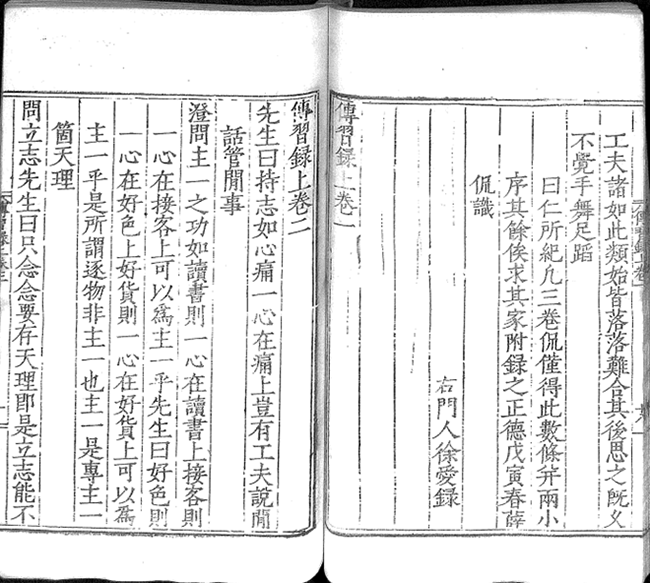 工夫諸如此類始皆落落難合其後思之既乂
不覺手舞足蹈
曰仁所紀凡三卷侃僅得此數條并兩小
序其餘俟求其家附錄之正德戊寅春薛
侃識
右門人徐愛錄
傳習錄上卷一
傳習錄上卷二
先生曰持志如心痛一心在痛上豈有工夫說閒
話管閒事
澄問主一之功如讀書則一心在讀書上接客則
一心在接客上可以爲主一乎先生曰好色則
一心在好色上好貨則一心在好貨上可以爲
主一乎是所謂逐物非主一也主一是專主一
箇天理
問立志先生曰只念念要存天理即是立志能不